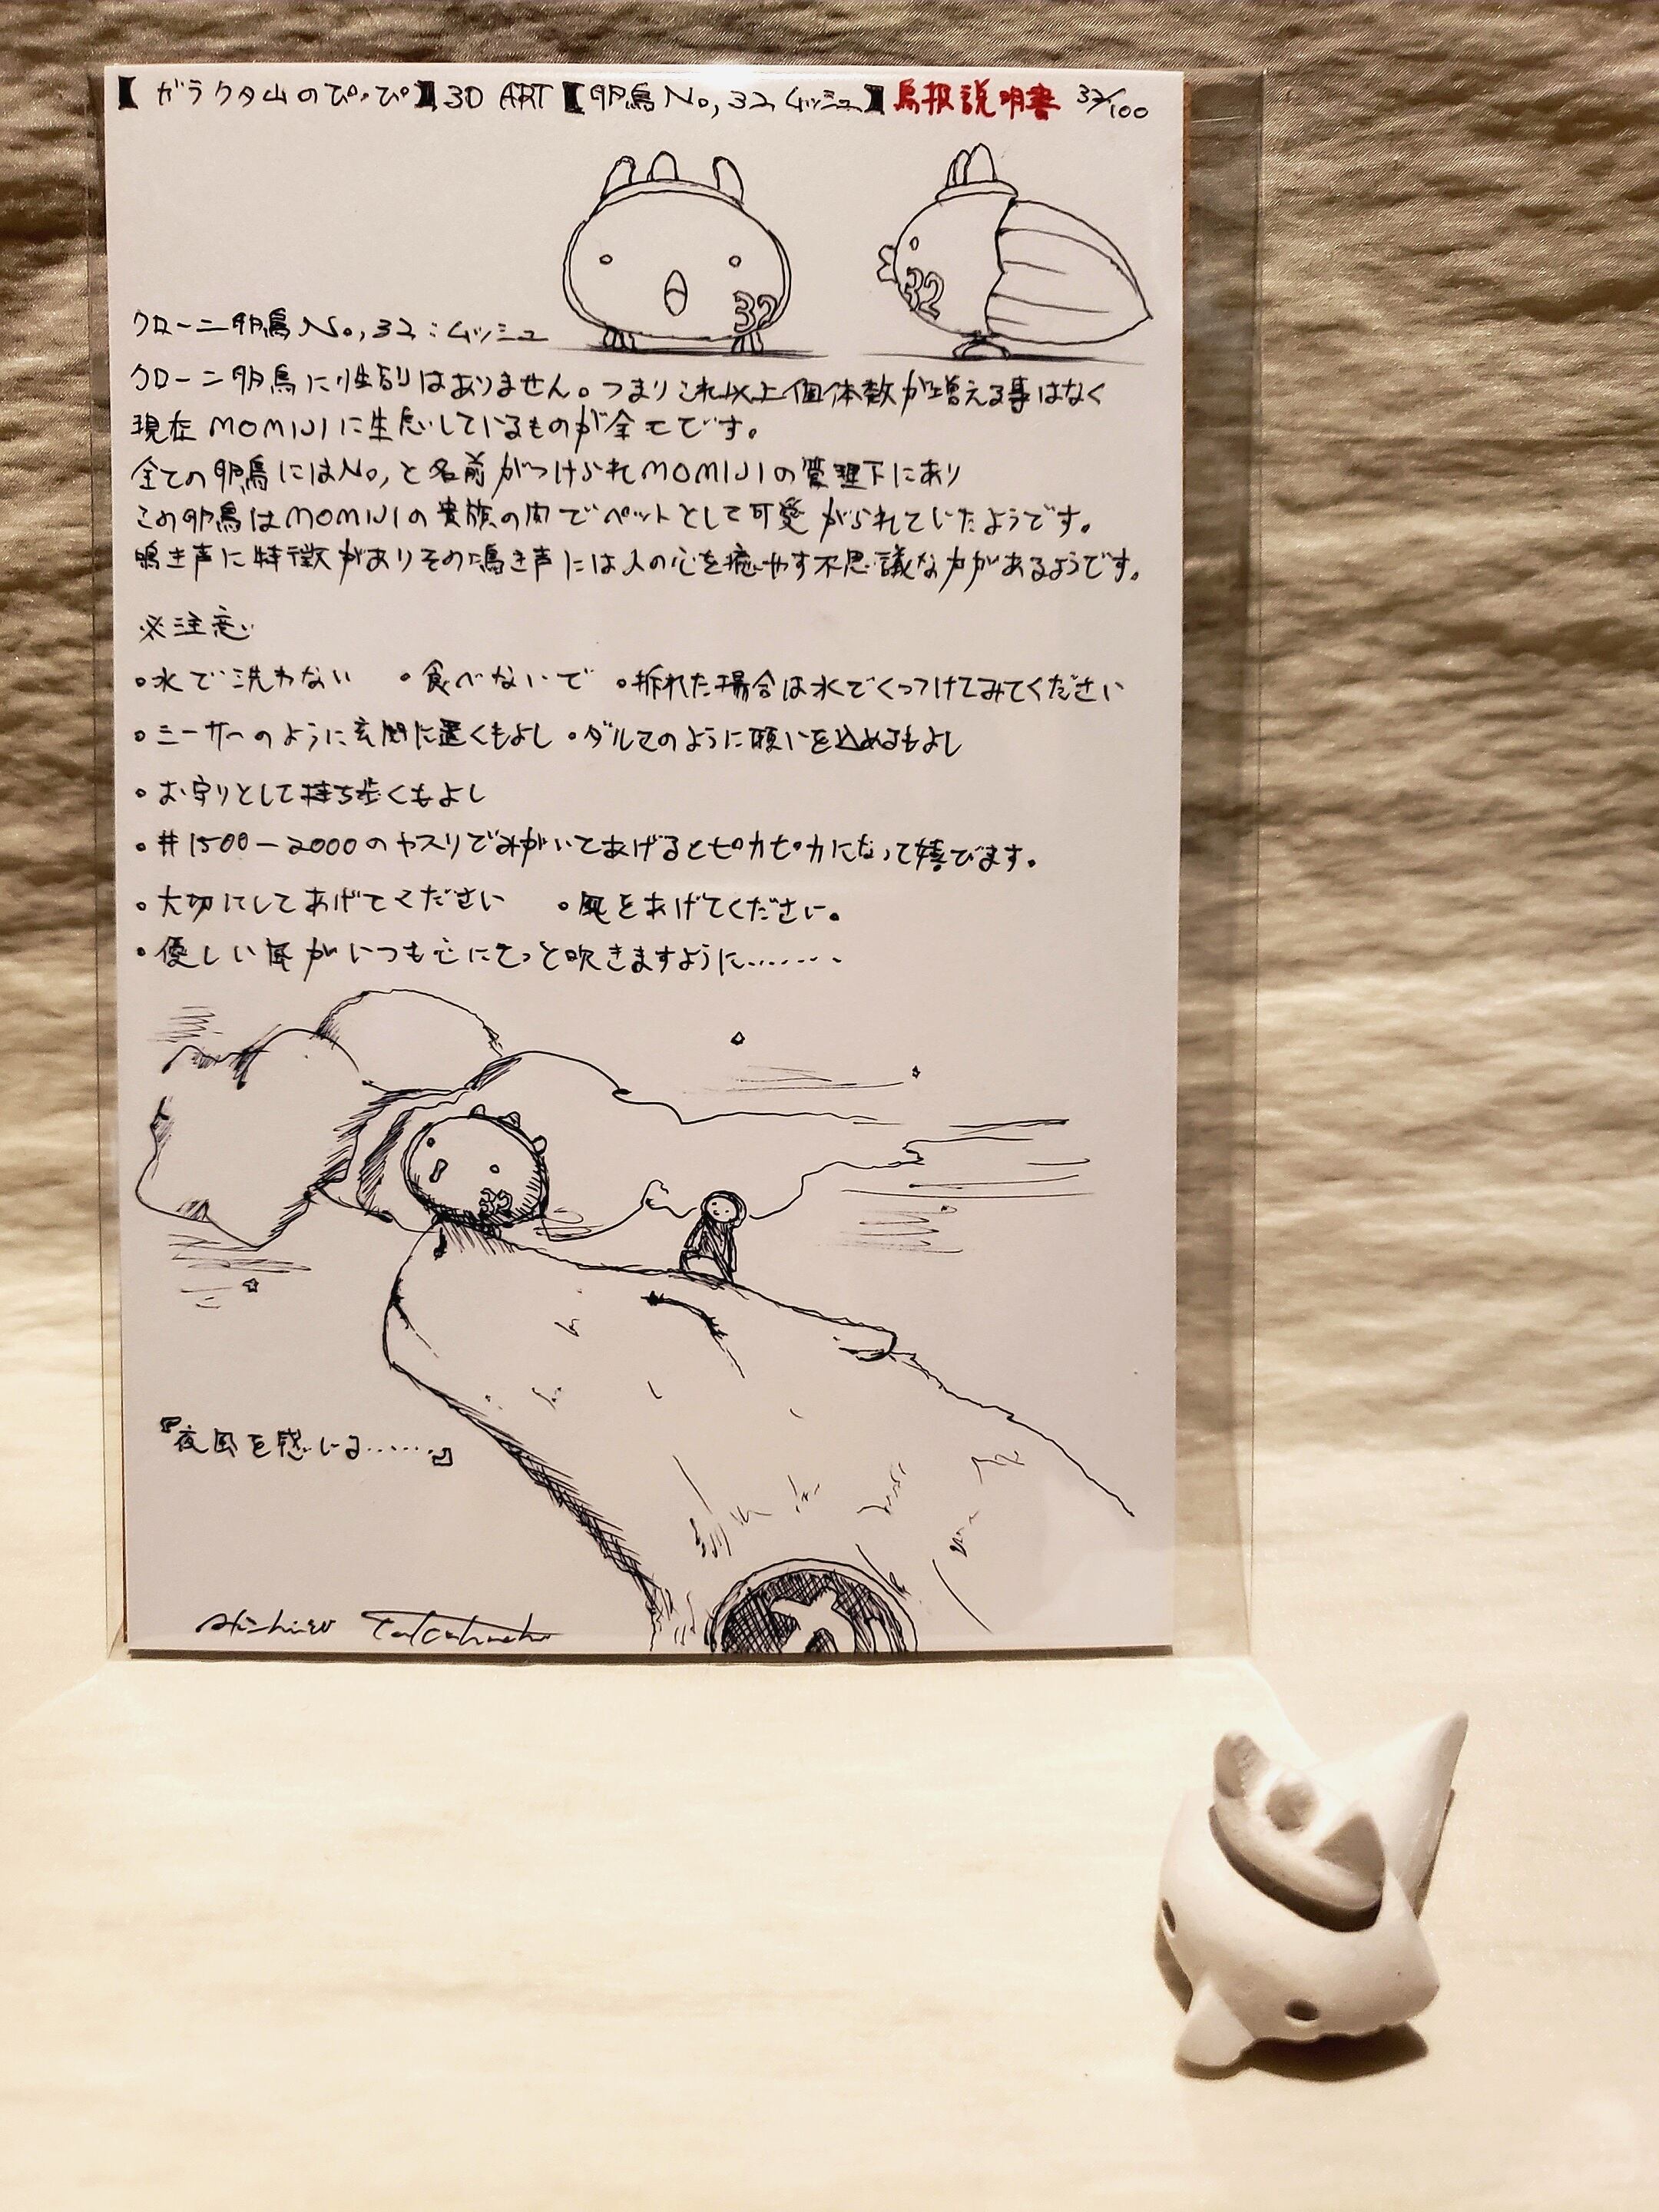 【ガラクタ山のぴっぴ】3D ART【卵鳥No,32ムッシュ】鳥扱説明書 32/100
32
32
クローン卵鳥No,32：ムッシュ
クローン卵鳥に性別はありません。つまりこれ以上個体数が増える事はなく
現在MOMIJIに生息しているものが全てです。
全ての卵鳥にはNo,と名前がつけられMOMIJIの管理下にあり
この卵鳥はMOMIJIの貴族の間でペットとして可愛がられていたようです。
鳴き声に特徴がありその鳴き声には人の心を癒やす不思議な力があるようです。
※注意
・水で洗わない ・食べないで ・折れた場合は水でくっつけてみてください
・シーサーのように玄関に置くもよし ・ダルマのように願いを込めるもよし
・お守りとして持ち歩くもよし
・#1500-2000のヤスリでみがいてあげるとピカピカになって喜びます。
・大切にしてあげてください ・風をあげてください。
・優しい風がいつも心にそっと吹きますように........
32
『夜風を感じる......』